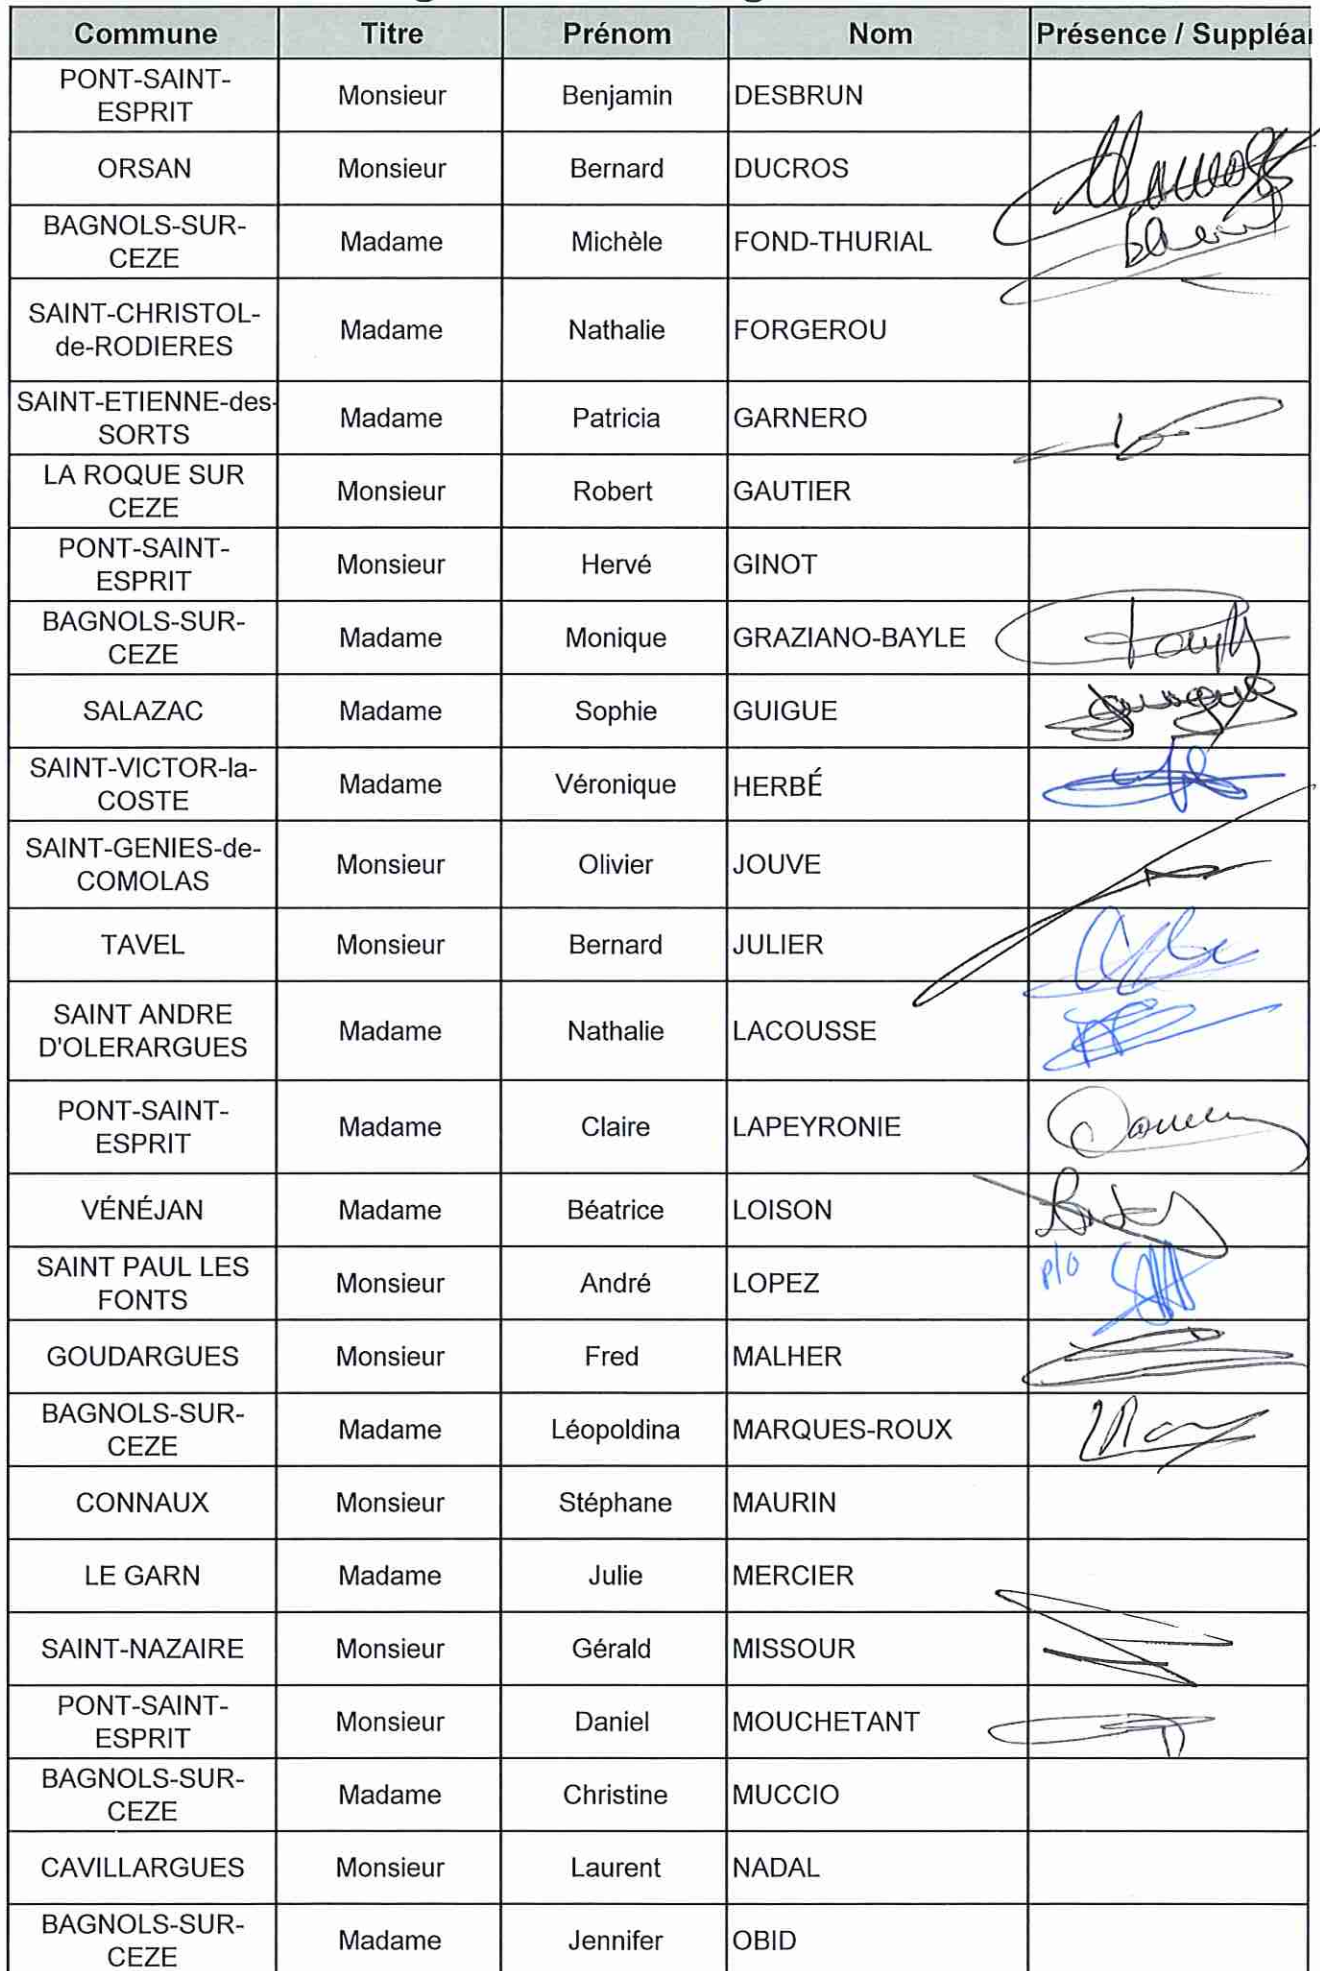 Commune Titre Prénom Nom Présence / Suppléa
PONT-SAINT-
ESPRIT Monsieur Benjamin DESBRUN
ORSAN Monsieur Bernard DUCROS
BAGNOLS-SUR-
CEZE Madame Michèle FOND-THURIAL
SAINT-CHRISTOL-
de-RODIERES Madame Nathalie FORGEROU
SAINT-ETIENNE-des-
SORTS Madame Patricia GARNERO
LA ROQUE SUR
CEZE Monsieur Robert GAUTIER
PONT-SAINT-
ESPRIT Monsieur Hervé GINOT
BAGNOLS-SUR-
CEZE Madame Monique GRAZIANO-BAYLE
SALAZAC Madame Sophie GUIGUE
SAINT-VICTOR-la-
COSTE Madame Véronique HERBÉ
SAINT-GENIES-de-
COMOLAS Monsieur Olivier JOUVE
TAVEL Monsieur Bernard JULIER
SAINT ANDRE
D'OLERARGUES Madame Nathalie LACOUSSE
PONT-SAINT-
ESPRIT Madame Claire LAPEYRONIE
VÉNÉJAN Madame Béatrice LOISON
SAINT PAUL LES
FONTS Monsieur André LOPEZ p/o
GOUDARGUES Monsieur Fred MALHER
BAGNOLS-SUR-
CEZE Madame Léopoldina MARQUES-ROUX
CONNAUX Monsieur Stéphane MAURIN
LE GARN Madame Julie MERCIER
SAINT-NAZAIRE Monsieur Gérald MISSOUR
PONT-SAINT-
ESPRIT Monsieur Daniel MOUCHETANT
BAGNOLS-SUR-
CEZE Madame Christine MUCCIO
CAVILLARGUES Monsieur Laurent NADAL
BAGNOLS-SUR-
CEZE Madame Jennifer OBID